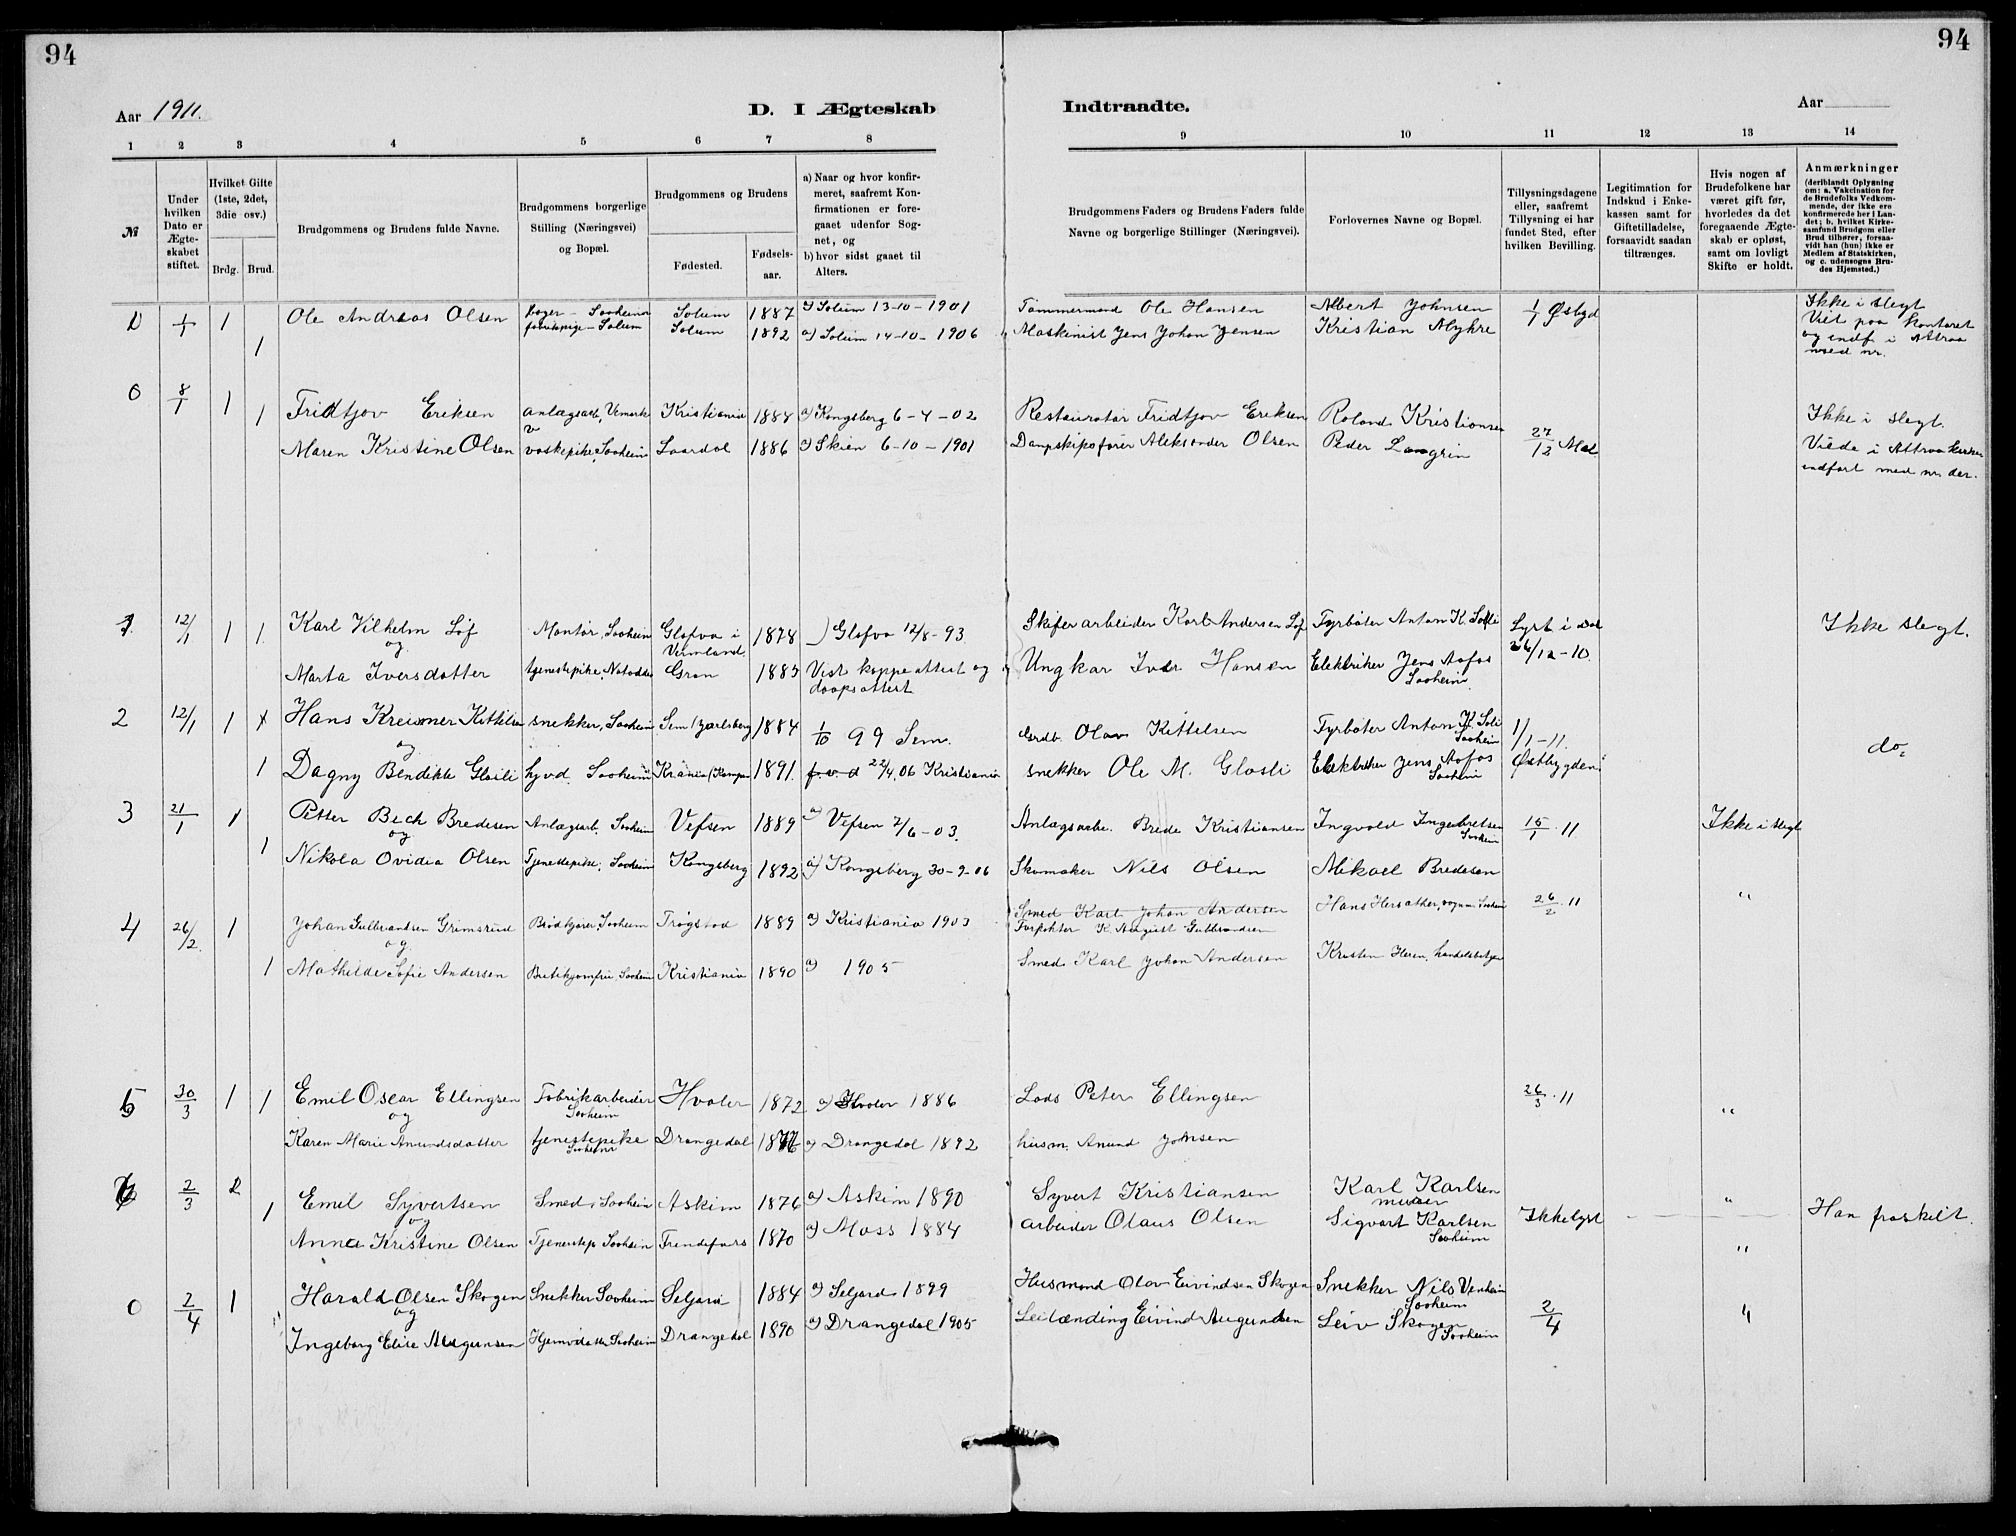 94
94
Aar 1911.
D. I Ægteskab
Indtraadte.
Aar
1 2 3 4 5 6 7 8 9 10 11 12 13 14
№
Under hvilken Dato er Ægte-skabet stiftet.
Hvilket Gifte (1ste, 2det, 3die osv.)
Brdg. Brud.
Brudgommens og Brudens fulde Navne.
Brudgommens borgerlige Stilling (Næringsvei) og Bopæl.
Brudgommens og Brudens
Fødested.
Fødsels-aar.
a) Naar og hvor konfir-meret, saafremt Kon-firmationen er fore-gaaet udenfor Sog-net, og
b) hvor sidst gaaet til Alters.
Brudgommens Faders og Brudens Faders fulde Navne og borgerlige Stillinger (Næringsvei).
Forlovernes Navne og Bopæl.
Tillysningsdagene eller, saafremt Tillysning ei har fundet Sted, efter hvilken Bevilling.
Legitimation for Indskud i Enke-kassen samt for Giftetilladelse, forsaavidt saadan tiltrænges.
Hvis nogen af Brudefolkene har været gift før, hvorledes da det foregaaende Ægte-skab er opløst, samt om lovligt Skifte er holdt.
Anmærkninger
(deriblandt Oplysning om: a. Vakcination for de Brudefolks Vedkom-mende, der ikke ere konfirmerede her i Lan-det; b. hvilket Kirke-samfund Brudgom eller Brud tilhører, forsaa-vidt han (hun) ikke er Medlem af Statskirken, og c. udensogns Bru-des Hjemsted.)
1/1 1 Ole Andreas Olsen Saaheim Solum 1887 a) Solum 13-10-1901 Tømmermand Ole Hansen Albert Johnsen 1/1 Østbyd Ikke i slegt
1 Solum Solum 1892 a) Solum 14-10-1906 Maskinist Jens Johan Jensen Kristian Myhre Viet paa kontoret
og indf. i Attraa
med nr.
0 8/1 1 1 Fridtjov Eriksen anlægsarb. Vemork Kristiania 1884 a) Kongsberg 6-4-02 Restauratør Fridtjov Eriksen Roland Kristiansen Ikke i slegt.
Maren Kristine Olsen vaskepike, Saaheim Laardal 1886 a) Skien 6-10-1901 Dampskipsfører Aleksander Olsen Peder Langrin 27/12 Mæl Viede i Attraa kirke
indført med nr. der.
1 12/1 1 1 Karl Vilhelm Løf Montør, Saaheim Glafva i 1878 Glafva 12/8-93 Skiferarbeider Karl Andersen Løf Fyrbøter Anton K. Soli Lyst i Dal Ikke slegt.
og Vermland 26/12-10.
Marta Iversdatter tjenestepike, Notodden Gran 1885 Vist koppeattest og Ungkar Iver Hansen Elektriker Jens Aafos
daapsattest Saaheim.
2 12/1 1 Hans Kreismer Kittilsen snekker, Saaheim Sem (Jarlsberg) 1884 1/10 99 Sem. Grdb. Olav Kittelsen Fyrbøter Anton K. Soli 1/1-11. do.
og Saaheim
1 Dagny Bendikte Glosli hj.v.d. Saaheim 1891. 22/4.06 Kristiania snekker Ole M. Glosli Elektriker Jens Aafos Østbygden
Saaheim
3 21/1 1 Petter Bech Bredesen Anlægsarb. Saaheim Vefsen 1889 a) Vefsen 7/6-03. Anlægsarbe. Brede Kristiansen Ingvald Ingebretsen 15/1.11 Ikke i slegt
og Saaheim
1 Nikola Ovidia Olsen Tjenestepike, Saaheim Kongsberg 1892 a) Kongsberg 30-9-06 Skomaker Nils Olsen Mikael Bredesen
4 26/2. 1 Johan Gulbrandsen Grimsrud Brødkjører, Saaheim Trøgstad 1889 a) Kristiania 1903 Smed Karl Johan Andersen 26/2.11 "
og Forpakter K August Gulbrandsen
1 Mathilde Sofie Andersen Butikjomfru Saaheim Kristiania 1890 a) 1905 Smed Karl Johan Andersen Kristen Heren, handelsbetjen
5 30/3 1 1 Emil Oscar Ellingsen Fabrikarbeider Hvaler 1872 a) Hvaler 1886 Lods Peter Ellingsen 26/3.11 "
og Saaheim
Karen Marie Anundsdatter tjenestepike Drangedal a) Drangedal 1892 husm. Anund Johnsen
Saaheim
6 2/3 2 1 Emil Syvertsen Smed, Saaheim Askim 1876 a) Askim 1890 Syvert Kristiansen Karl Karlsen " Han fraskilt.
og murer
Anna Kristine Olsen Tjenestep Saaheim 1870 a) Moss 1884 arbeider Olaus Olsen Sigvart Karlsen Ikke lyst
Saaheim "
0 2/4 1 Harald Olsen Skogen Snekker Saaheim Seljord 1884 a) Seljord 1899 Husmand Olav Eivindsen Skogen Snekker Nils Venheim "
og Saaheim
Ingeborg Elise Augunsen Saaheim Drangedal 1890 a) Drangedal 1905 Leilænding Eivind Augundsen Leiv Skogen 2/4
Saaheim